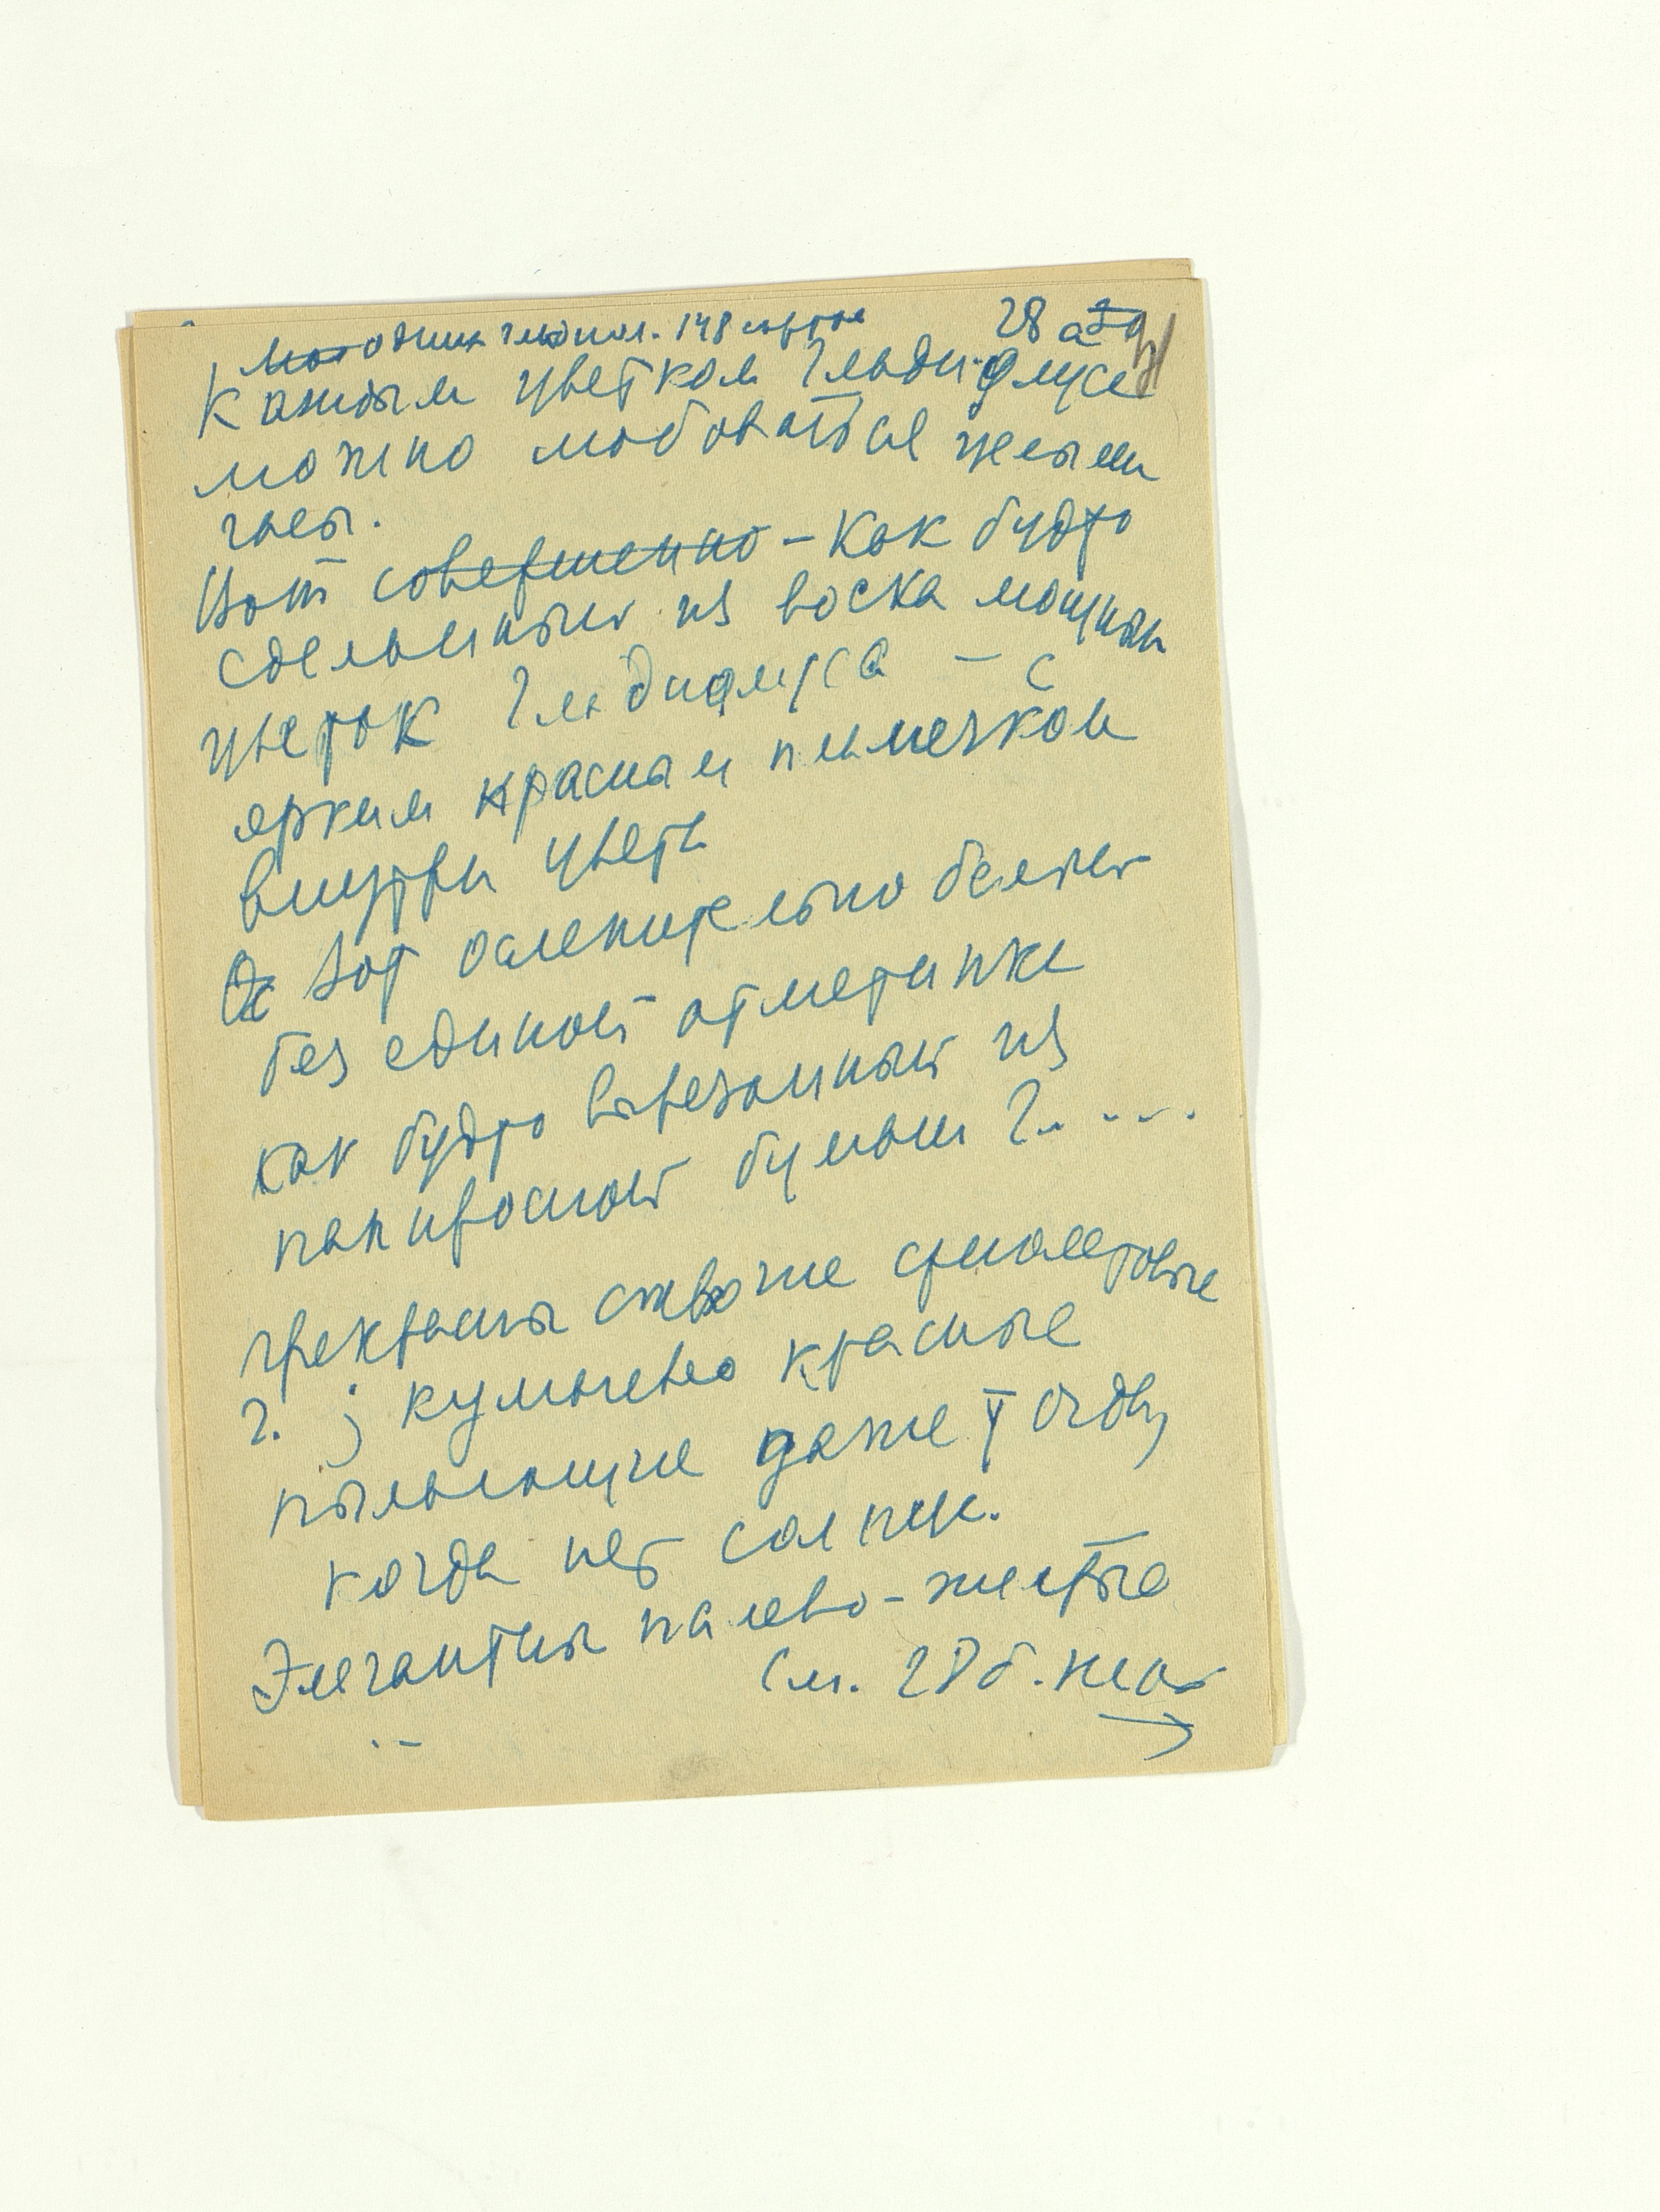 одних гладиол. 148 сортов 28 а
Каждым цветком гладиолуса
можно любоваться целыми
часы.
Вот совершенно - как будто
сделанный из воска мощный
цветок гладиолуса - с
ярким красным пламечком
внутри цвета
А вот ослепительно белый
без единой отметинки
как будто вырезанный из
папиросной бумаги г.. ....
прекрасны также фиолетовые
г. ; кумачево красные
пылающие даже тогда,
когда нет солнца.
Элегантны палево-желтые
См. 28 б.